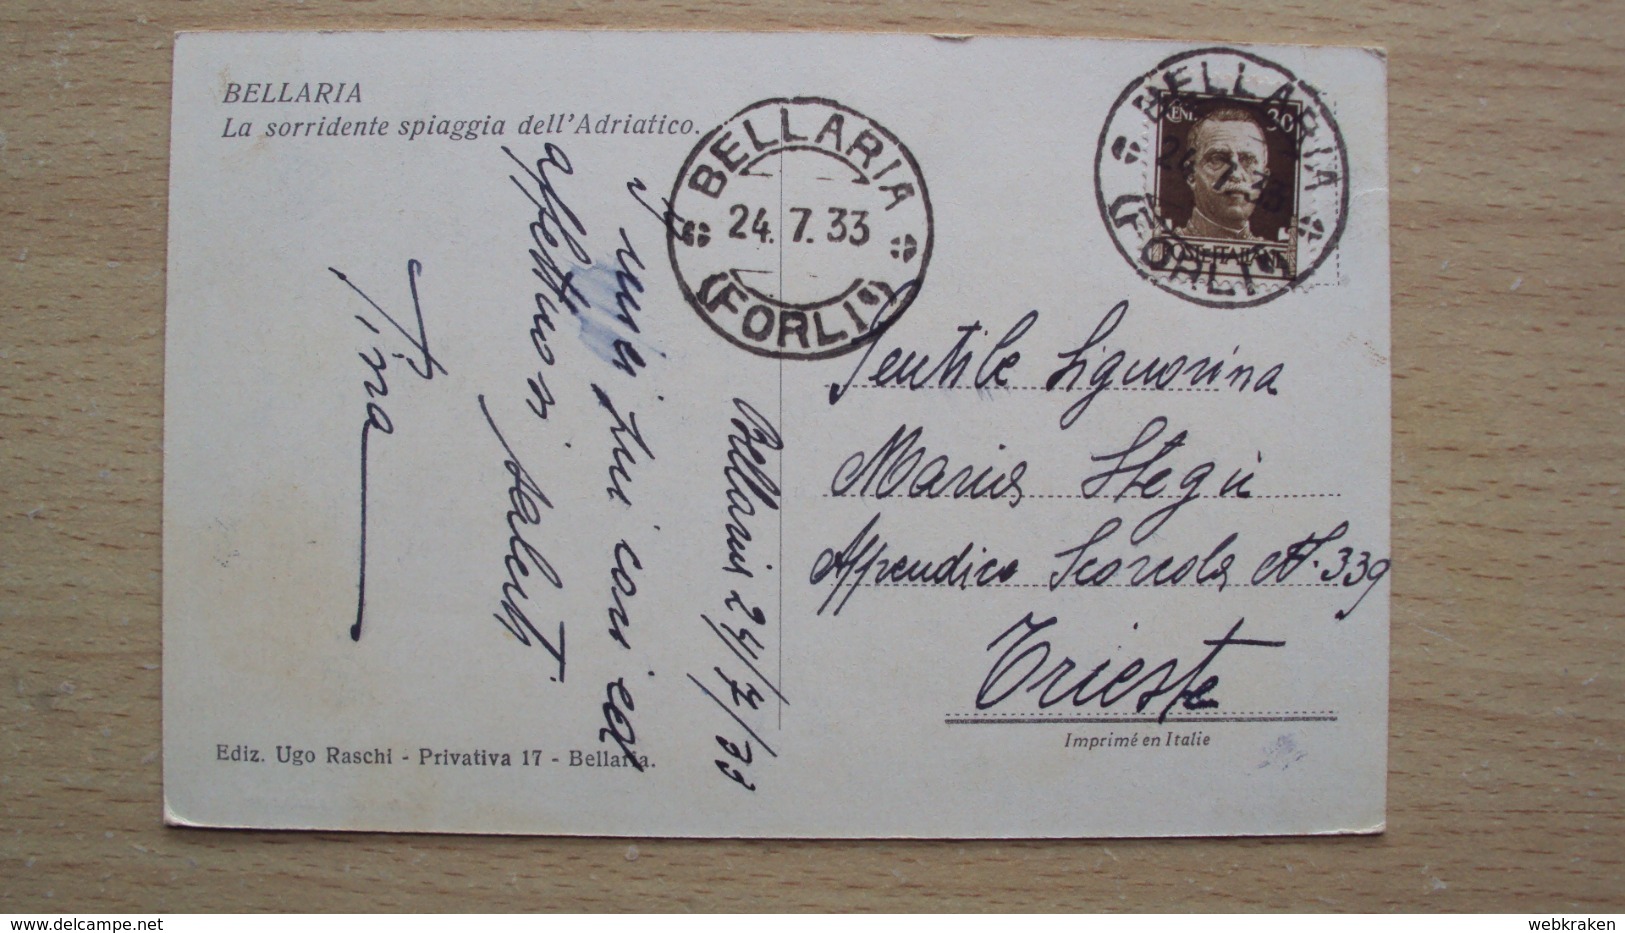 BELLARIA
La sorridente spiaggia dell'Adriatico.
BELLARIA
24.7.33
(FORLI)
BELLARIA
24.7.33
(FORLI)
CENT. 30
POSTE ITALIANE
Bellaria 24/7/33
I miei più cari ed
affettuosi saluti
Tina
Gentile Signorina
Maria Stegù
Appendice Scorcola N. 339
Trieste
Imprimé en Italie
Ediz. Ugo Raschi - Privativa 17 - Bellaria.
webkraken